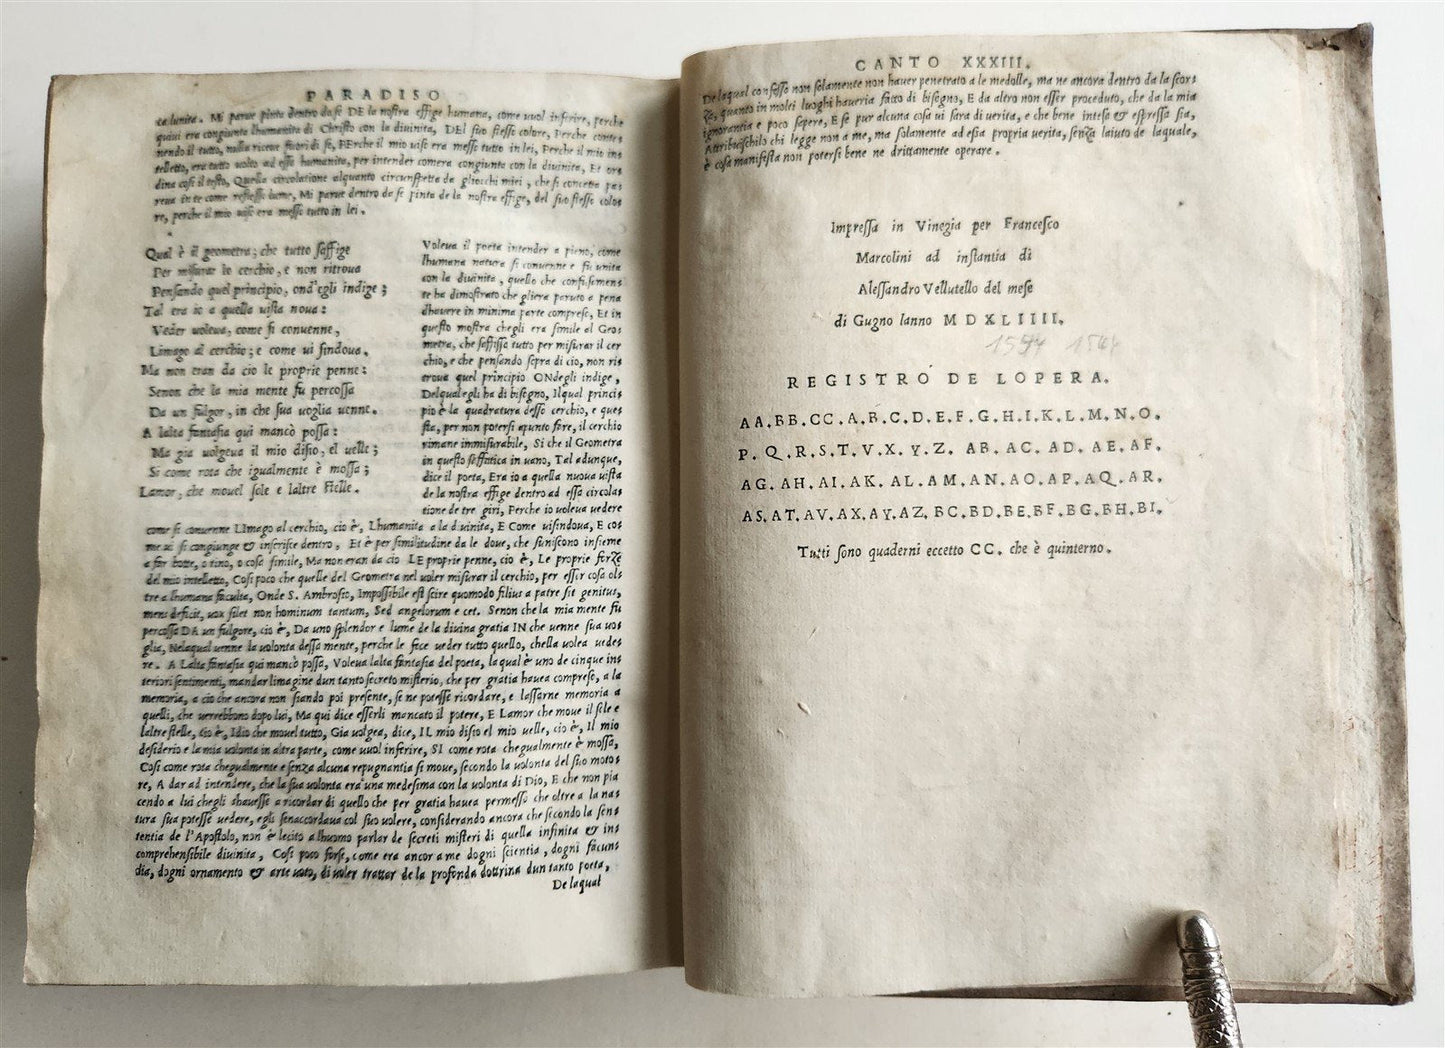 PARADISO
ca lunite. Mi parue pinta dentro da se DE la nostra effige humana, come uuol inferire, perche
quiui era congiunta lhumanita di Christo con la diuinita, DEl suo stesso colore, Perche conte=
nendo il tutto, nulla riceue fuori di se, PErche il mio uiso era messo tutto in lei, Perche il mio in=
telletto, era tutto uolto ad essa humanita, per intender comera congiunta con la diuinita, Et or=
dina cosi il testo, Quella circolatione alquanto circunspetta da gliocchi miei, che si concetta pa=
reua in te come reflesso lume, Mi parue dentro da se pinta de la nostra effige, del suo stesso colo=
re, perche il mio uiso era messo tutto in lei.
Qual è il geometra; che tutto saffige
Per misurar lo cerchio, e non ritroua
Pensando quel principio, ond'egli indige;
Tal era io a quella uista noua:
Veder uoleua, come si conuenne,
Limago al cerchio; e come ui sindoua.
Ma non eran da cio le proprie penne:
Senon che la mia mente fu percossa
Da un fulgor, in che sua uoglia uenne.
A lalta fantasia qui mancò possa:
Ma gia uolgeua il mio disio, el uelle;
Si come rota che igualmente è mossa;
Lamor, che mouel sole e laltre stelle.
Voleua il poeta intender a pieno, come
lhumana natura si conuenne e fu unita
con la diuinita, quello che confusamen=
te ha dimostrato che gliera paruto a pena
dhauere in minima parte compreso, Et in
questo mostra chegli era simile al Geo=
metra, che saffissa tutto per misurar il cer
chio, e che pensando sopra di cio, non ri=
troua quel principio ONdegli indige,
Delqual egli ha di bisogno, Ilqual princi=
pio è la quadratura desso cerchio, e que=
sta, per non potersi apunto fare, il cerchio
rimane immisurabile, Si che il Geometra
in questo saffatica in uano, Tal adunque,
dice il poeta, Era io a quella nuoua uista
de la nostra effige dentro ad essa circola=
tione de tre giri, Perche io uoleua uedere
come si conuenne LImago al cerchio, cio è, Lhumanita a la diuinita, E Come uisindoua, E co=
me ui si congiunge & inserisce dentro, Et è per similitudine da le doue, che suniscono insieme
a far botte, o tino, o cosa simile, Ma non eran da cio LE proprie penne, cio è, Le proprie forze
del mio intelletto, Cosi poco che quelle del Geometra nel uoler misurar il cerchio, per esser cosa ol=
tre a lhumana faculta, Onde S. Ambrosio, Impossibile est scire quomodo filius a patre sit genitus,
mens deficit, uox silet non hominum tantum, Sed angelorum e cet. Senon che la mia mente fu
percossa DA un fulgore, cio è, Da uno splendor e lume de la diuina gratia IN che uenne sua uo=
glia, Nelaqual uenne la uolonta dessa mente, perche le fece ueder tutto quello, chella uolea uede=
re. A Lalta fantasia qui mancò possa, Voleua lalta fantasia del poeta, la qual è uno de cinque in=
teriori sentimenti, mandar limagine dun tanto secreto misterio, che per gratia hauea compreso, a la
memoria, a cio che ancora non siando poi presente, se ne potesse ricordare, e lassarne memoria a
quelli, che uerrebbono dopo lui, Ma qui dice esserli mancato il potere, E Lamor che moue il sole e
laltre stelle, cio è, Idio che mouel tutto, Gia uolgea, dice, IL mio disio el mio uelle, cio è, Il mio
desiderio e la mia uolonta in altra parte, come uuol inferire, SI come rota chegualmente è mossa,
Cosi come rota chegualmente e senza alcuna repugnantia si moue, secondo la uolonta del suo moto=
re, A dar ad intendere, che la sua uolonta era una medesima con la uolonta di Dio, E che non pia
cendo a lui chegli shauesse a ricordar di quello che per gratia hauea permesso che oltre a la na=
tura sua potesse uedere, egli senaccordaua col suo uolere, considerando ancora che secondo la sen=
tentia de l'Apostolo, non è lecito alhuomo parlar de secreti misteri di quella infinita & in=
comprehensibile diuinita, Cosi poco forse, come era ancor a me dogni scientia, dogni facun=
dia, dogni ornamento & arte uoto, di uoler trattar de la profonda dottrina dun tanto poeta,
De laqual
CANTO XXXIII.
De laqual confesso non solamente non hauer penetrato a le medolle, ma ne ancora dentro da la scor=
za, quanto in molti luoghi haueria fatto di bisogno, E da altro non esser proceduto, che da la mia
ignorantia e poco sapere, E se pur alcuna cosa ui sara di uerita, e che bene intesa & espressa sia,
Attribuischilo chi legge non a me, ma solamente ad essa propria uerita, senza laiuto de laquale,
è cosa manifesta non potersi bene ne drittamente operare.
Impressa in Vinegia per Francesco
Marcolini ad instantia di
Alessandro Vellutello del mese
di Gugno lanno MDXLIIII.
1544
REGISTRO DE LOPERA.
AA. BB. CC. A. B. C. D. E. F. G. H. I. K. L. M. N. O.
P. Q. R. S. T. V. X. Y. Z. AB. AC. AD. AE. AF.
AG. AH. AI. AK. AL. AM. AN. AO. AP. AQ. AR.
AS. AT. AV. AX. AY. AZ. BC. BD. BE. BF. BG. BH. BI.
Tutti sono quaderni eccetto CC. che è quinterno.